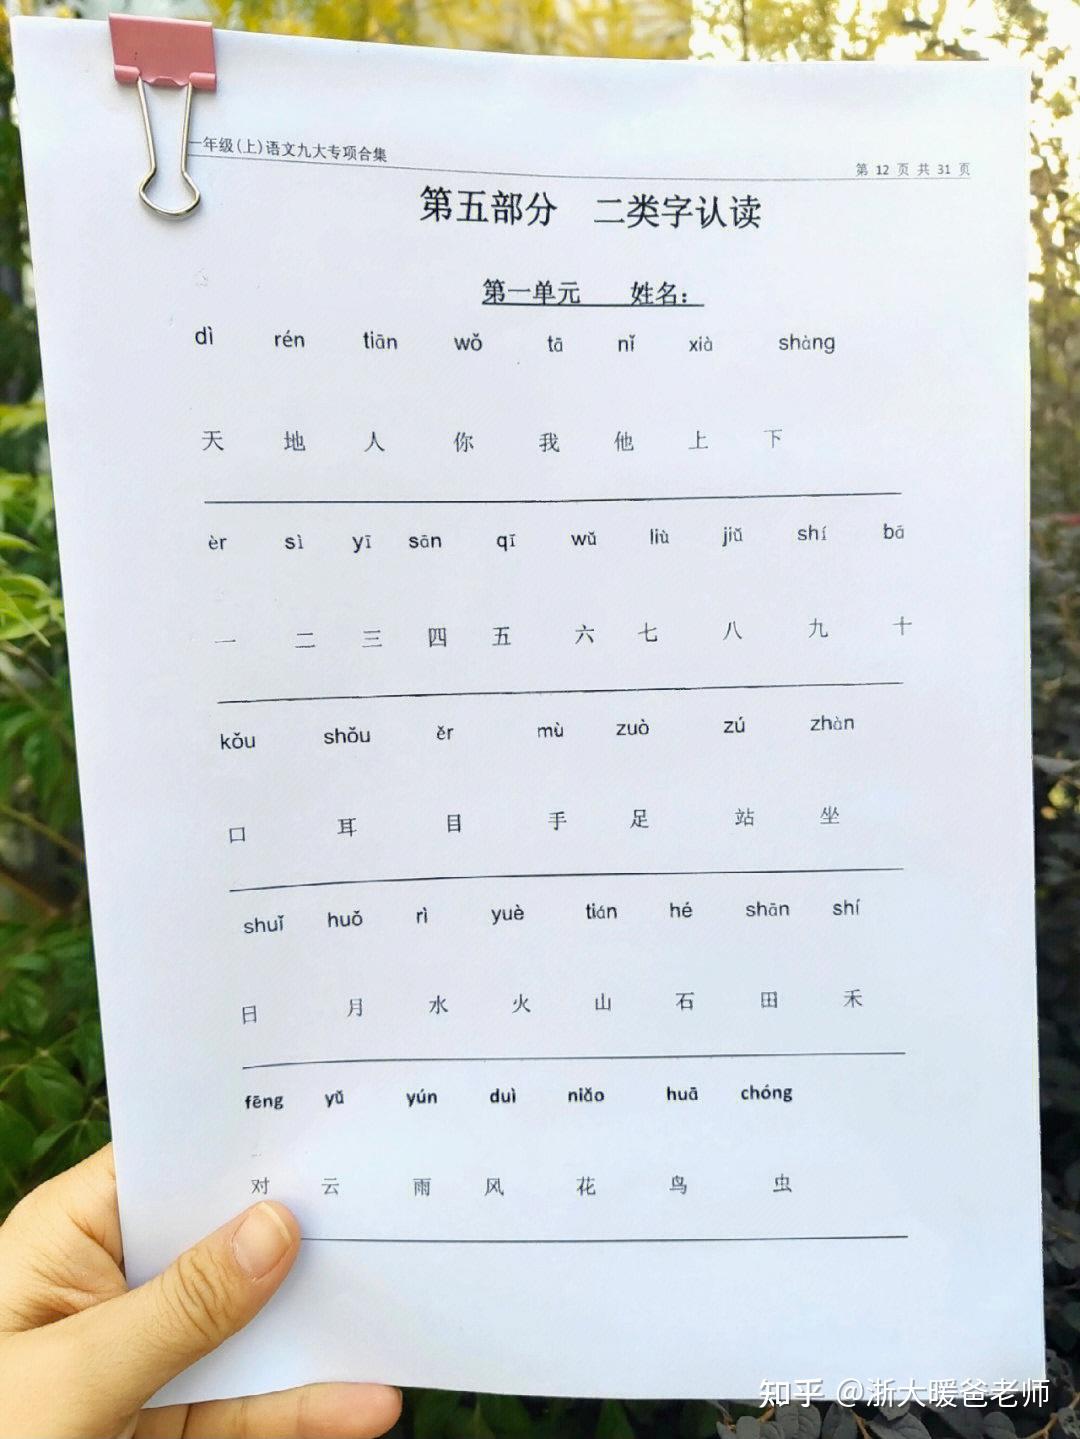 一年级(上)语文九大专项合集
第 12 页 共 31 页
第五部分 二类字认读
第一单元 姓名:
dì rén tiān wǒ tā nǐ xià shàng
天 地 人 你 我 他 上 下
èr sì yī sān qī wǔ liù jiǔ shí bā
一 二 三 四 五 六 七 八 九 十
kǒu shǒu ěr mù zuò zú zhàn
口 耳 目 手 足 站 坐
shuǐ huǒ rì yuè tián hé shān shí
日 月 水 火 山 石 田 禾
fēng yǔ yún duì niǎo huā chóng
对 云 雨 风 花 鸟 虫
知乎 @浙大暖爸老师